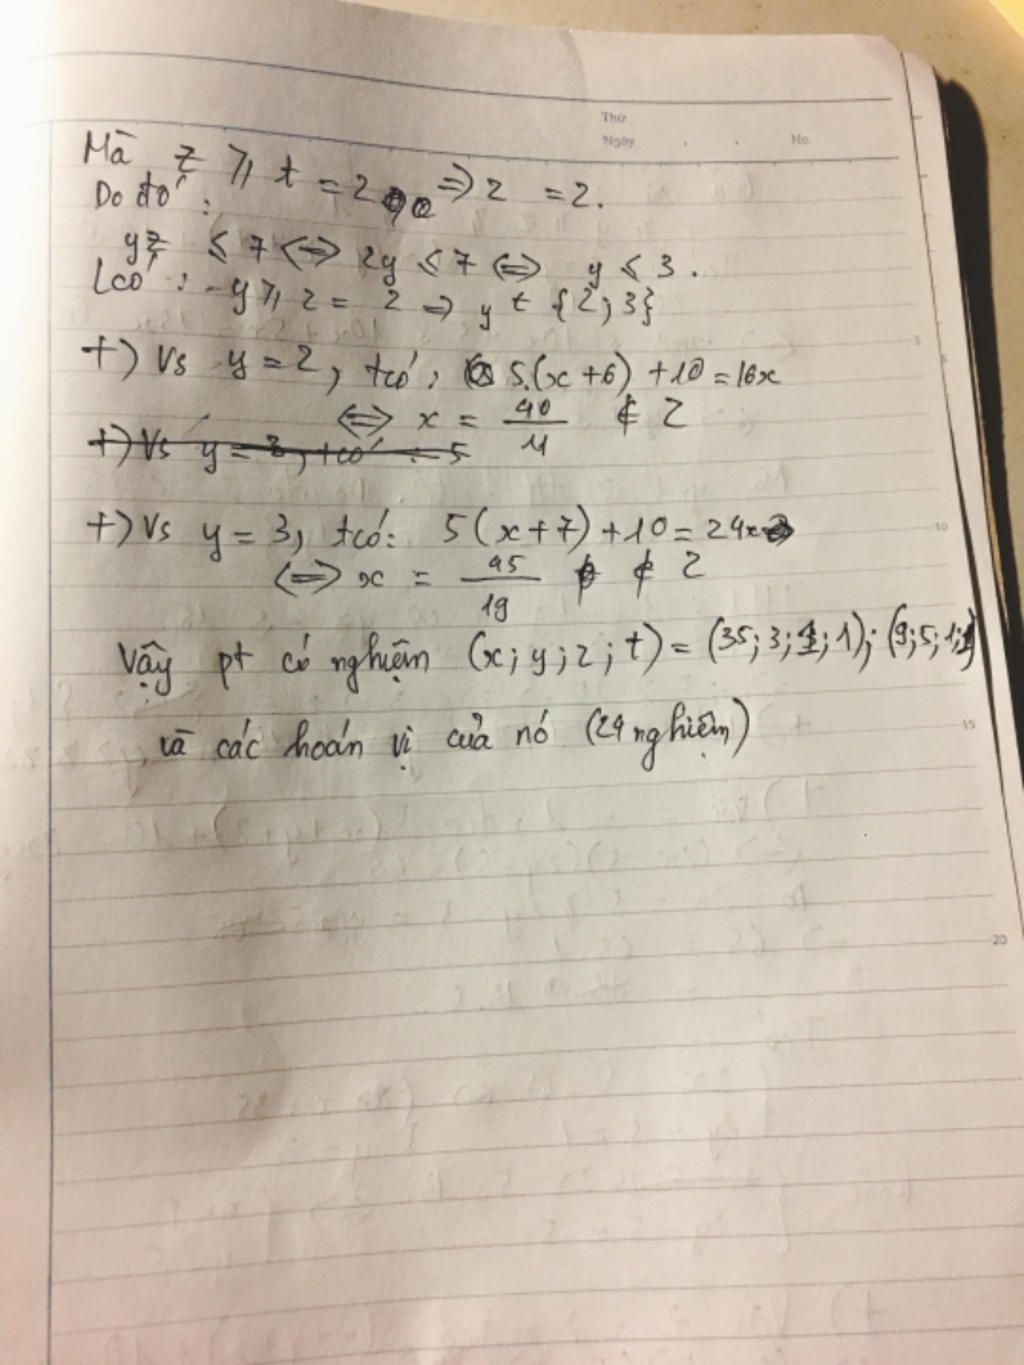 Thứ
Ngày . . No.
Mà z ⩾ t = 2 => z = 2.
Do đó :
yz ⩽ 7 <=> 2y ⩽ 7 <=> y ⩽ 3.
Lcó : y ⩾ z = 2 => y t {2; 3}
+) Vs y = 2, tcó: 5.(x+6) + 10 = 16x
<=> x = 40/11 ∉ Z
+) Vs y = 3, tcó : 5
+) Vs y = 3, tcó: 5(x+7) + 10 = 24x
<=> x = 45/19 ∉ Z
Vậy pt có nghiệm (x; y; z; t) = (35; 3; 1; 1); (9; 5; 1; 1)
và các hoán vị của nó (24 nghiệm)
5
10
15
20